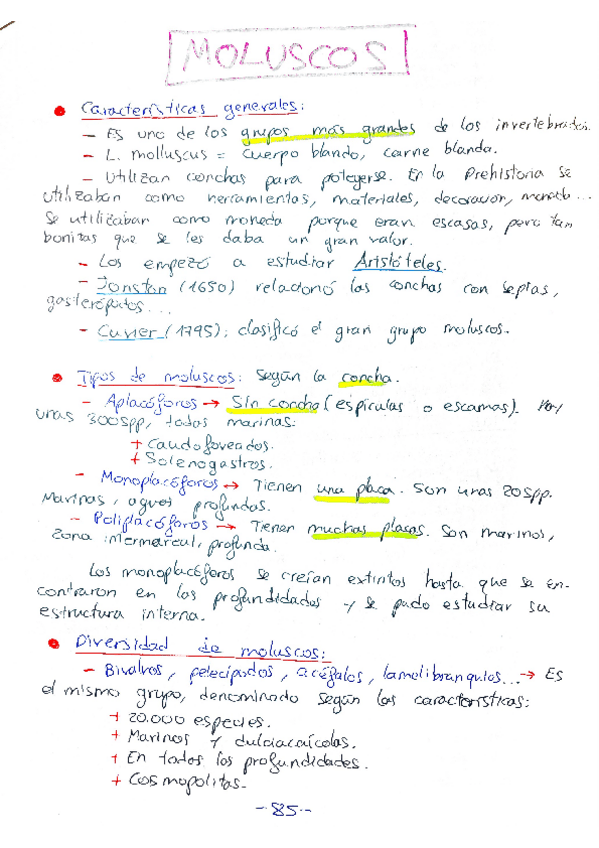 MOLUSCOS
• Características generales:
– Es uno de los grupos más grandes de los invertebrados.
– L. molluscus = cuerpo blando, carne blanda.
– Utilizan conchas para protegerse. En la Prehistoria se
utilizaban como herramientas, materiales, decoración, moneda...
Se utilizaban como moneda porque eran escasas, pero tan
bonitas que se les daba un gran valor.
– Los empezó a estudiar Aristóteles.
– Jonston (1650) relacionó las conchas con sepias,
gasterópodos...
– Cuvier (1795); clasificó el gran grupo moluscos.
• Tipos de moluscos: Según la concha.
– Aplacóforos → Sin concha (espículas o escamas). Hay
unas 300spp, todas marinas:
+ Caudofoveados.
+ Solenogastros.
– Monoplacóforos → Tienen una placa. Son unas 20spp.
Marinas, aguas profundas.
– Poliplacóforos → Tienen muchas placas. Son marinos,
zona intermareal, profunda.
Los monoplacóferos se creían extintos hasta que se en-
contraron en las profundidades y se pudo estudiar su
estructura interna.
• Diversidad de moluscos:
– Bivalvos, pelecípodos, acéfalos, lamelibranquios... → Es
el mismo grupo, denominado según las características:
+ 20.000 especies.
+ Marinos y dulciacuícolas.
+ En todas las profundidades.
+ Cosmopolitas.
-85-